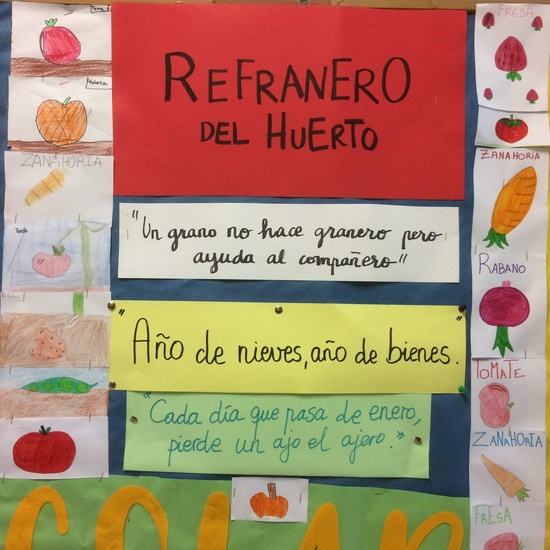 REFRANERO
DEL HUERTO
"Un grano no hace granero pero
ayuda al compañero"
"Año de nieves, año de bienes."
"Cada día que pasa de enero,
pierde un ajo el ajero."
ZANAHORIA
FRESA
ZANAHORIA
RABANO
TOMATE
ZANAHORIA
FRESA